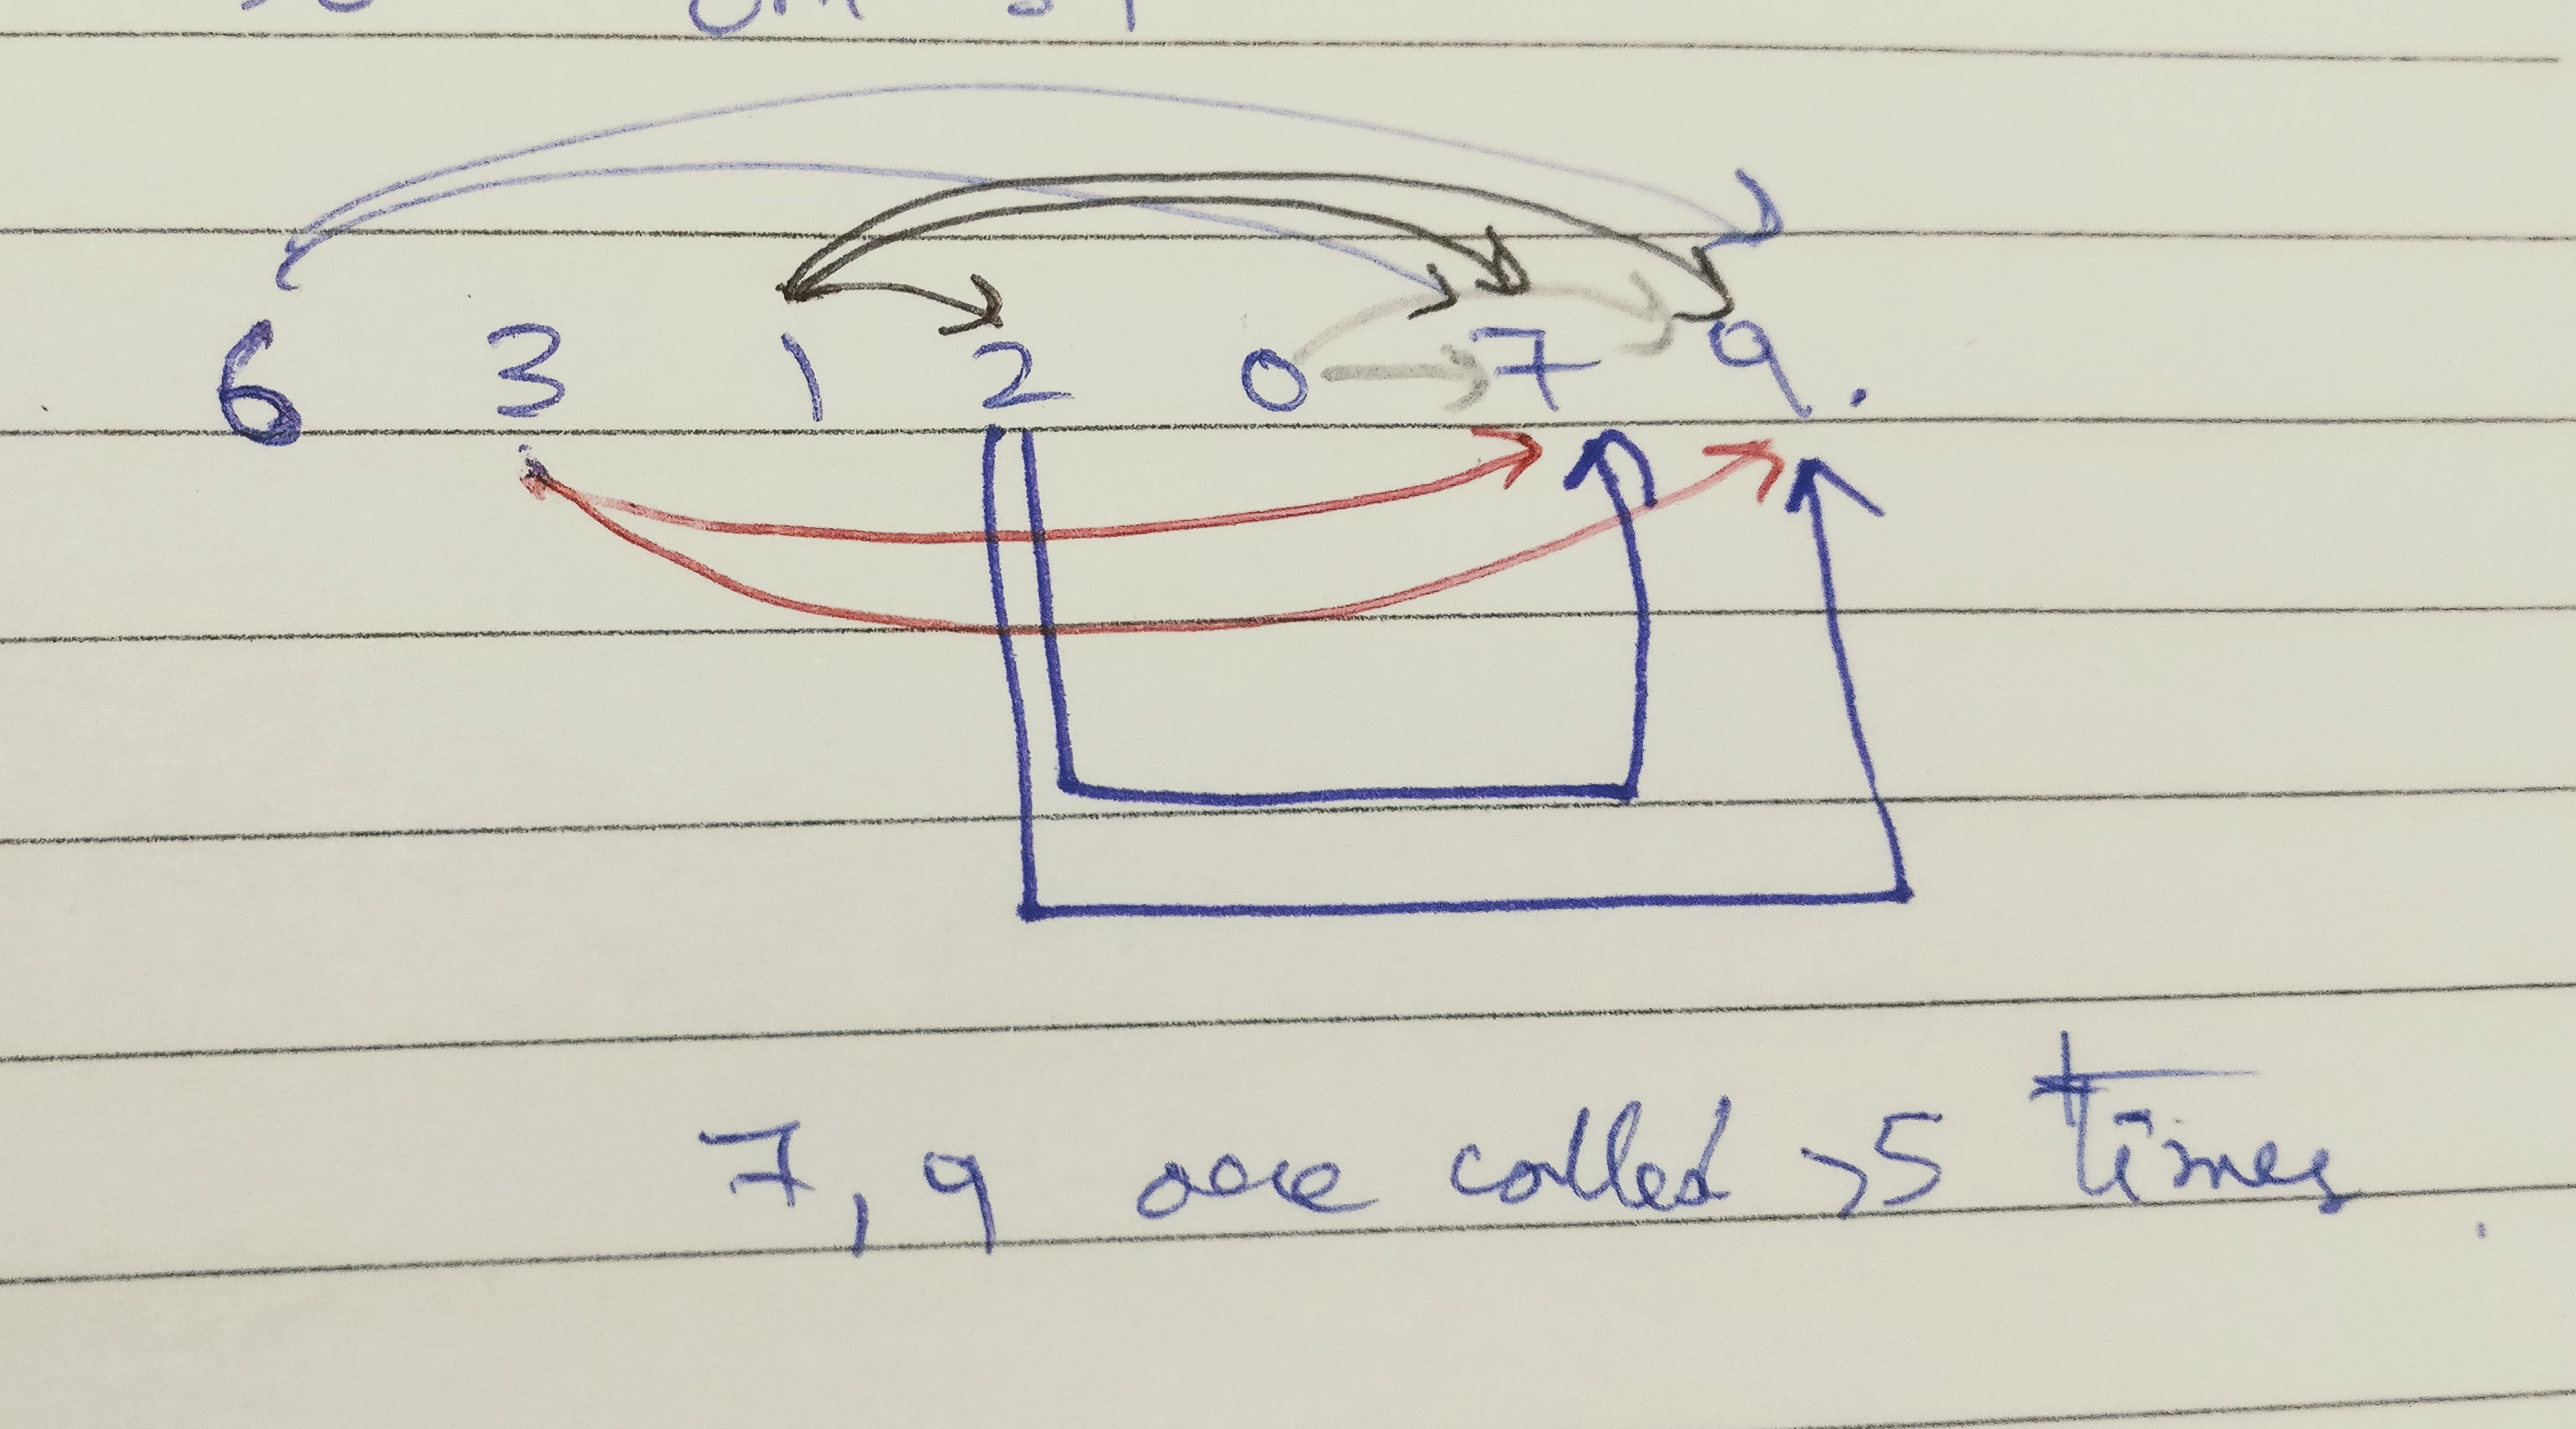 6 3 1 2 0 7 9.
7, 9 are called >5 Times